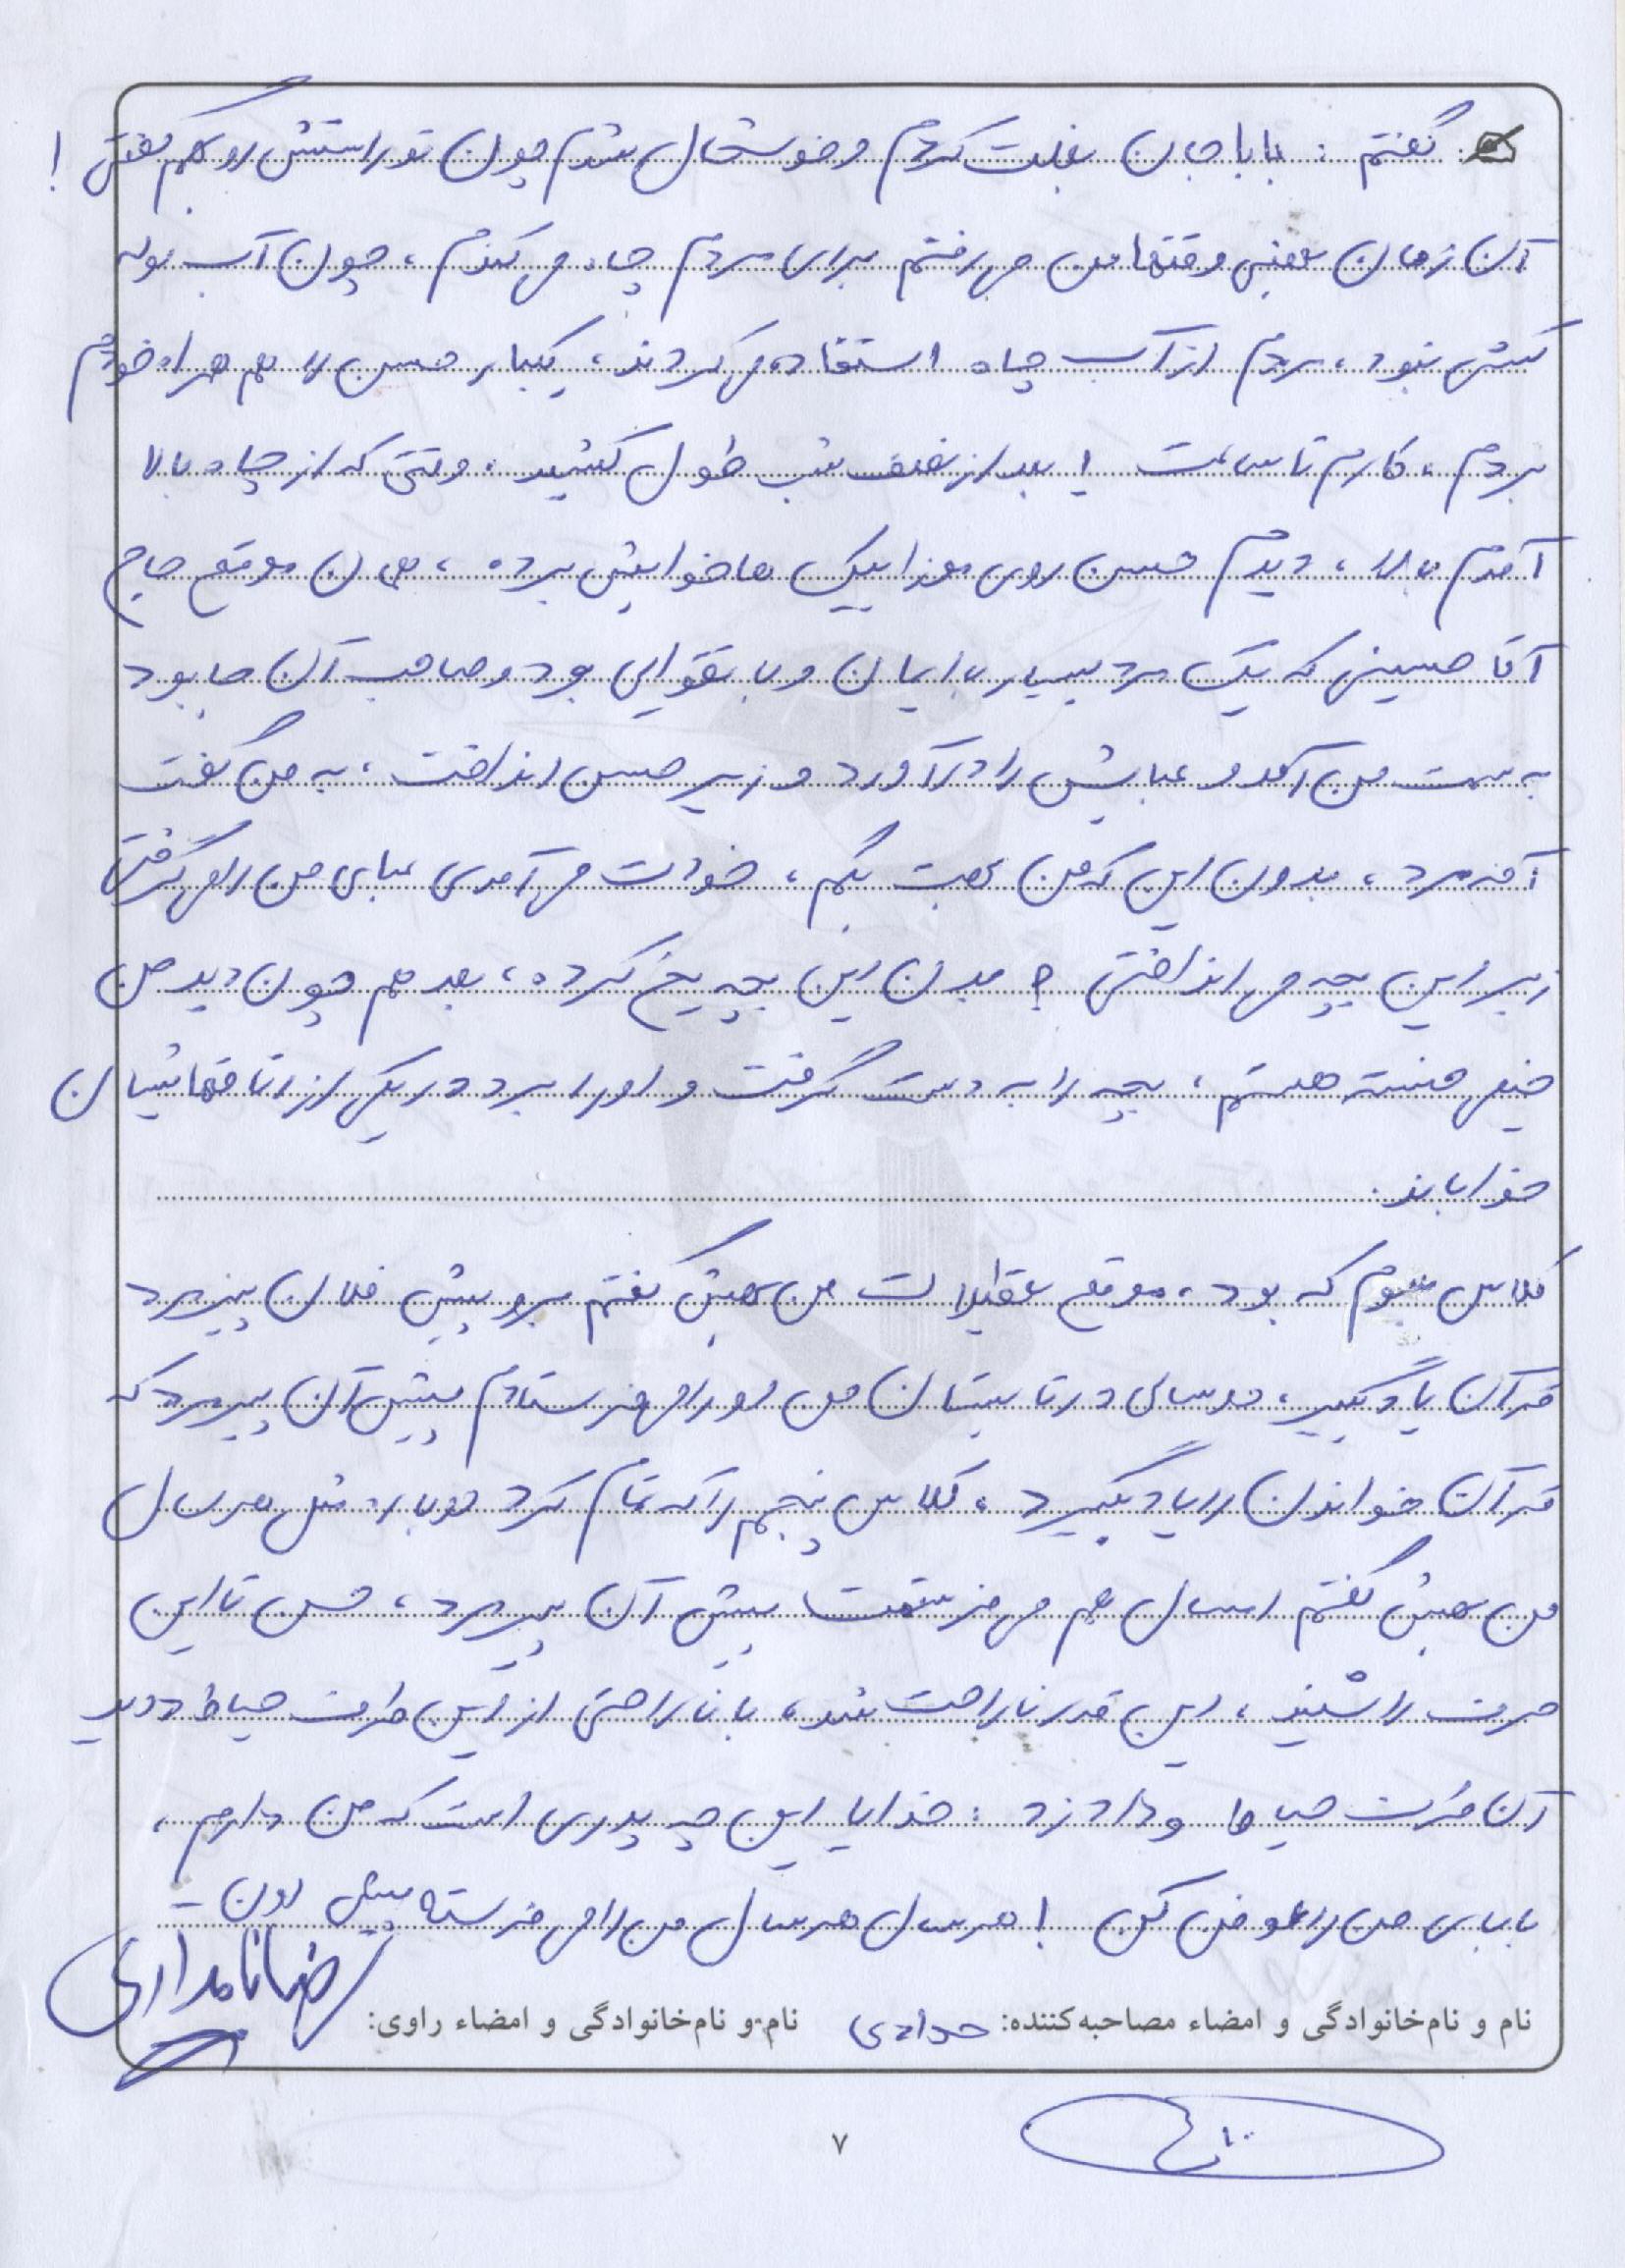 گفتم : بابا جان بغلت کردم و خوشحال شدم چون تو راستش رو بهم گفتی !
آن زمان بعضی وقتها من می رفتم برای مردم چاه می کندم ، چون آب لوله
کشی نبود ، مردم از آب چاه استفاده می کردند ، یکبار حسن را هم همراه خودم
بردم ، کارم تا ساعت ۱ بعد از نصف شب طول کشید ، وقتی که از چاه بالا
آمدم بالا ، دیدم حسن روی موزاییک ها خوابش برده ، همان موقع حاج
آقا حسینی که یک مرد بسیار با ایمان و با تقوایی بود و صاحب آن جا بود
به سمت من آمد و عبایش را درآورد و زیر حسن انداخت ، به من گفت
آخه مرد ، بدون این که من بهت بگم ، خودت می آمدی عبای من را می گرفتی
زیر این بچه می انداختی ؟ بدن این بچه یخ کرده ، بعد هم چون دید من
خیلی خسته هستم ، بچه را به دست گرفت و او را برد در یکی از اتاقهایشان
خواباند .
کلاس سوم که بود ، موقع تعطیلات من بهش گفتم برو پیش فلان پیرمرد
قرآن یاد بگیر ، دو سالی در تابستان من او را می فرستادم پیش آن پیرمرد که
قرآن خواندن را یاد بگیرد ، کلاس پنجم را که تمام کرد دوباره مثل هر سال
من بهش گفتم امسال هم می فرستمت پیش آن پیرمرد ، حسن تا این
حرف را شنید ، این قدر ناراحت شد ، با ناراحتی از این طرف حیاط دوید
آن طرف حیاط و داد زد : خدایا این چه پدری است که من دارم ،
بابای من را عوض کن ! هر سال هر سال من را می فرسته پیش اون -
نام و نام‌خانوادگی و امضاء مصاحبه‌کننده: حدادی نام و نام‌خانوادگی و امضاء راوی: رضا نامداری
۷